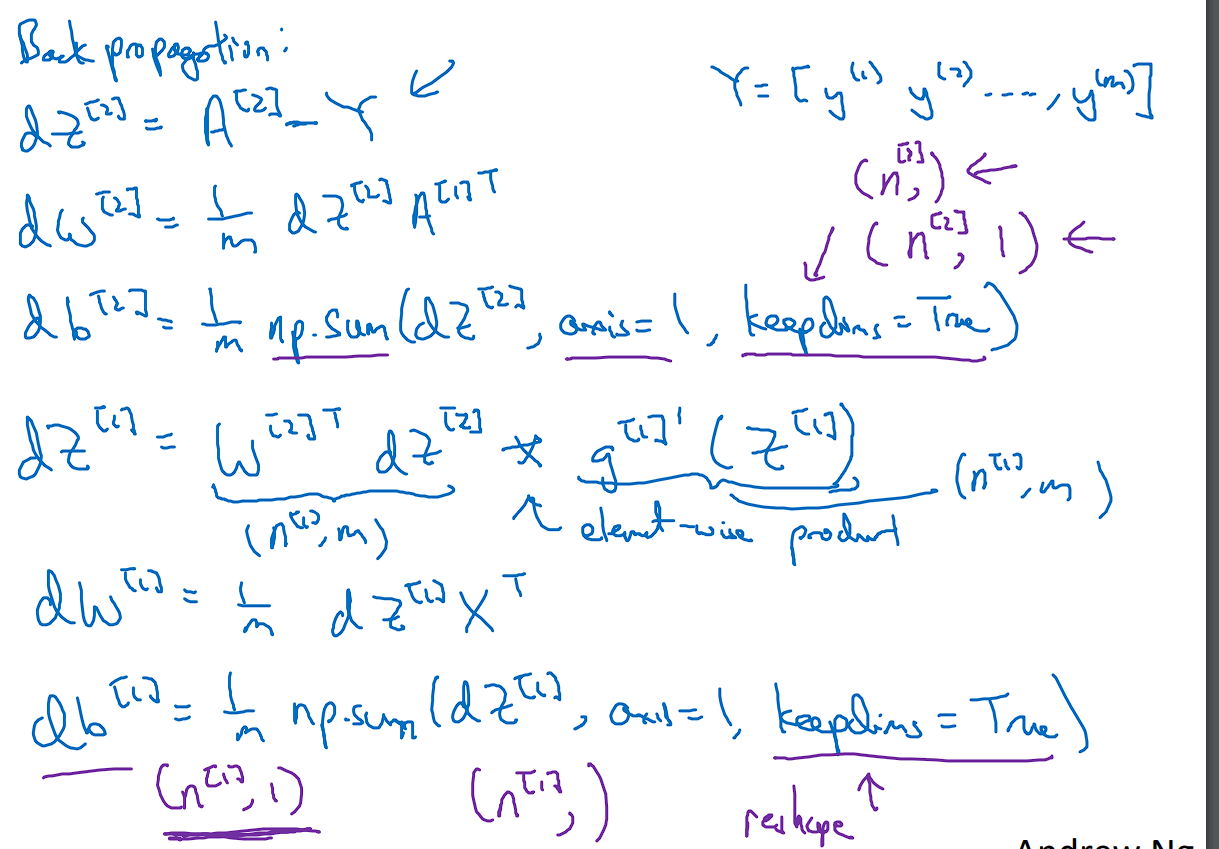 Back propagation:
dZ^[2] = A^[2] - Y ↙
Y = [y^(1) y^(2) ...., y^(m)]
dW^[2] = 1/m dZ^[2] A^[1]T
(n^[2],) ←
(n^[2], 1) ←
db^[2] = 1/m np.sum(dZ^[2], axis=1, keepdims=True)
dZ^[1] = W^[2]T dZ^[2] * g^[1]'(Z^[1])
(n^[1], m) element-wise product (n^[1], m)
dW^[1] = 1/m dZ^[1] X^T
db^[1] = 1/m np.sum(dZ^[1], axis=1, keepdims=True)
(n^[1], 1) (n^[1],) reshape ↑
Andrew Ng